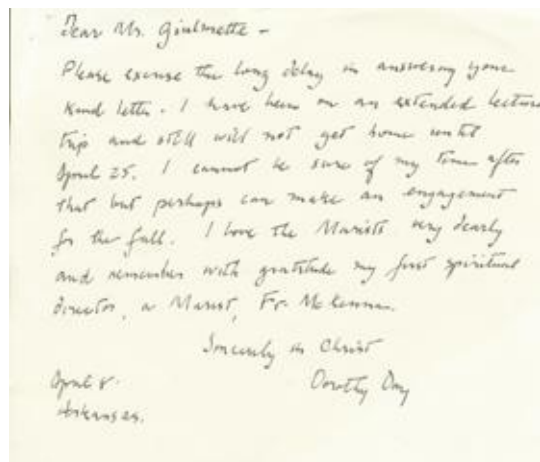 Dear Mr. Giulmette -
Please excuse the long delay in answering your
kind letter. I have been on an extended lecture
trip and still will not get home until
April 25. I cannot be sure of my time after
that but perhaps can make an engagement
for the fall. I love the Marists very dearly
and remember with gratitude my first spiritual
director, a Marist, Fr. McKenna.
Sincerely in Christ
April 8. Dorothy Day
Arkansas.